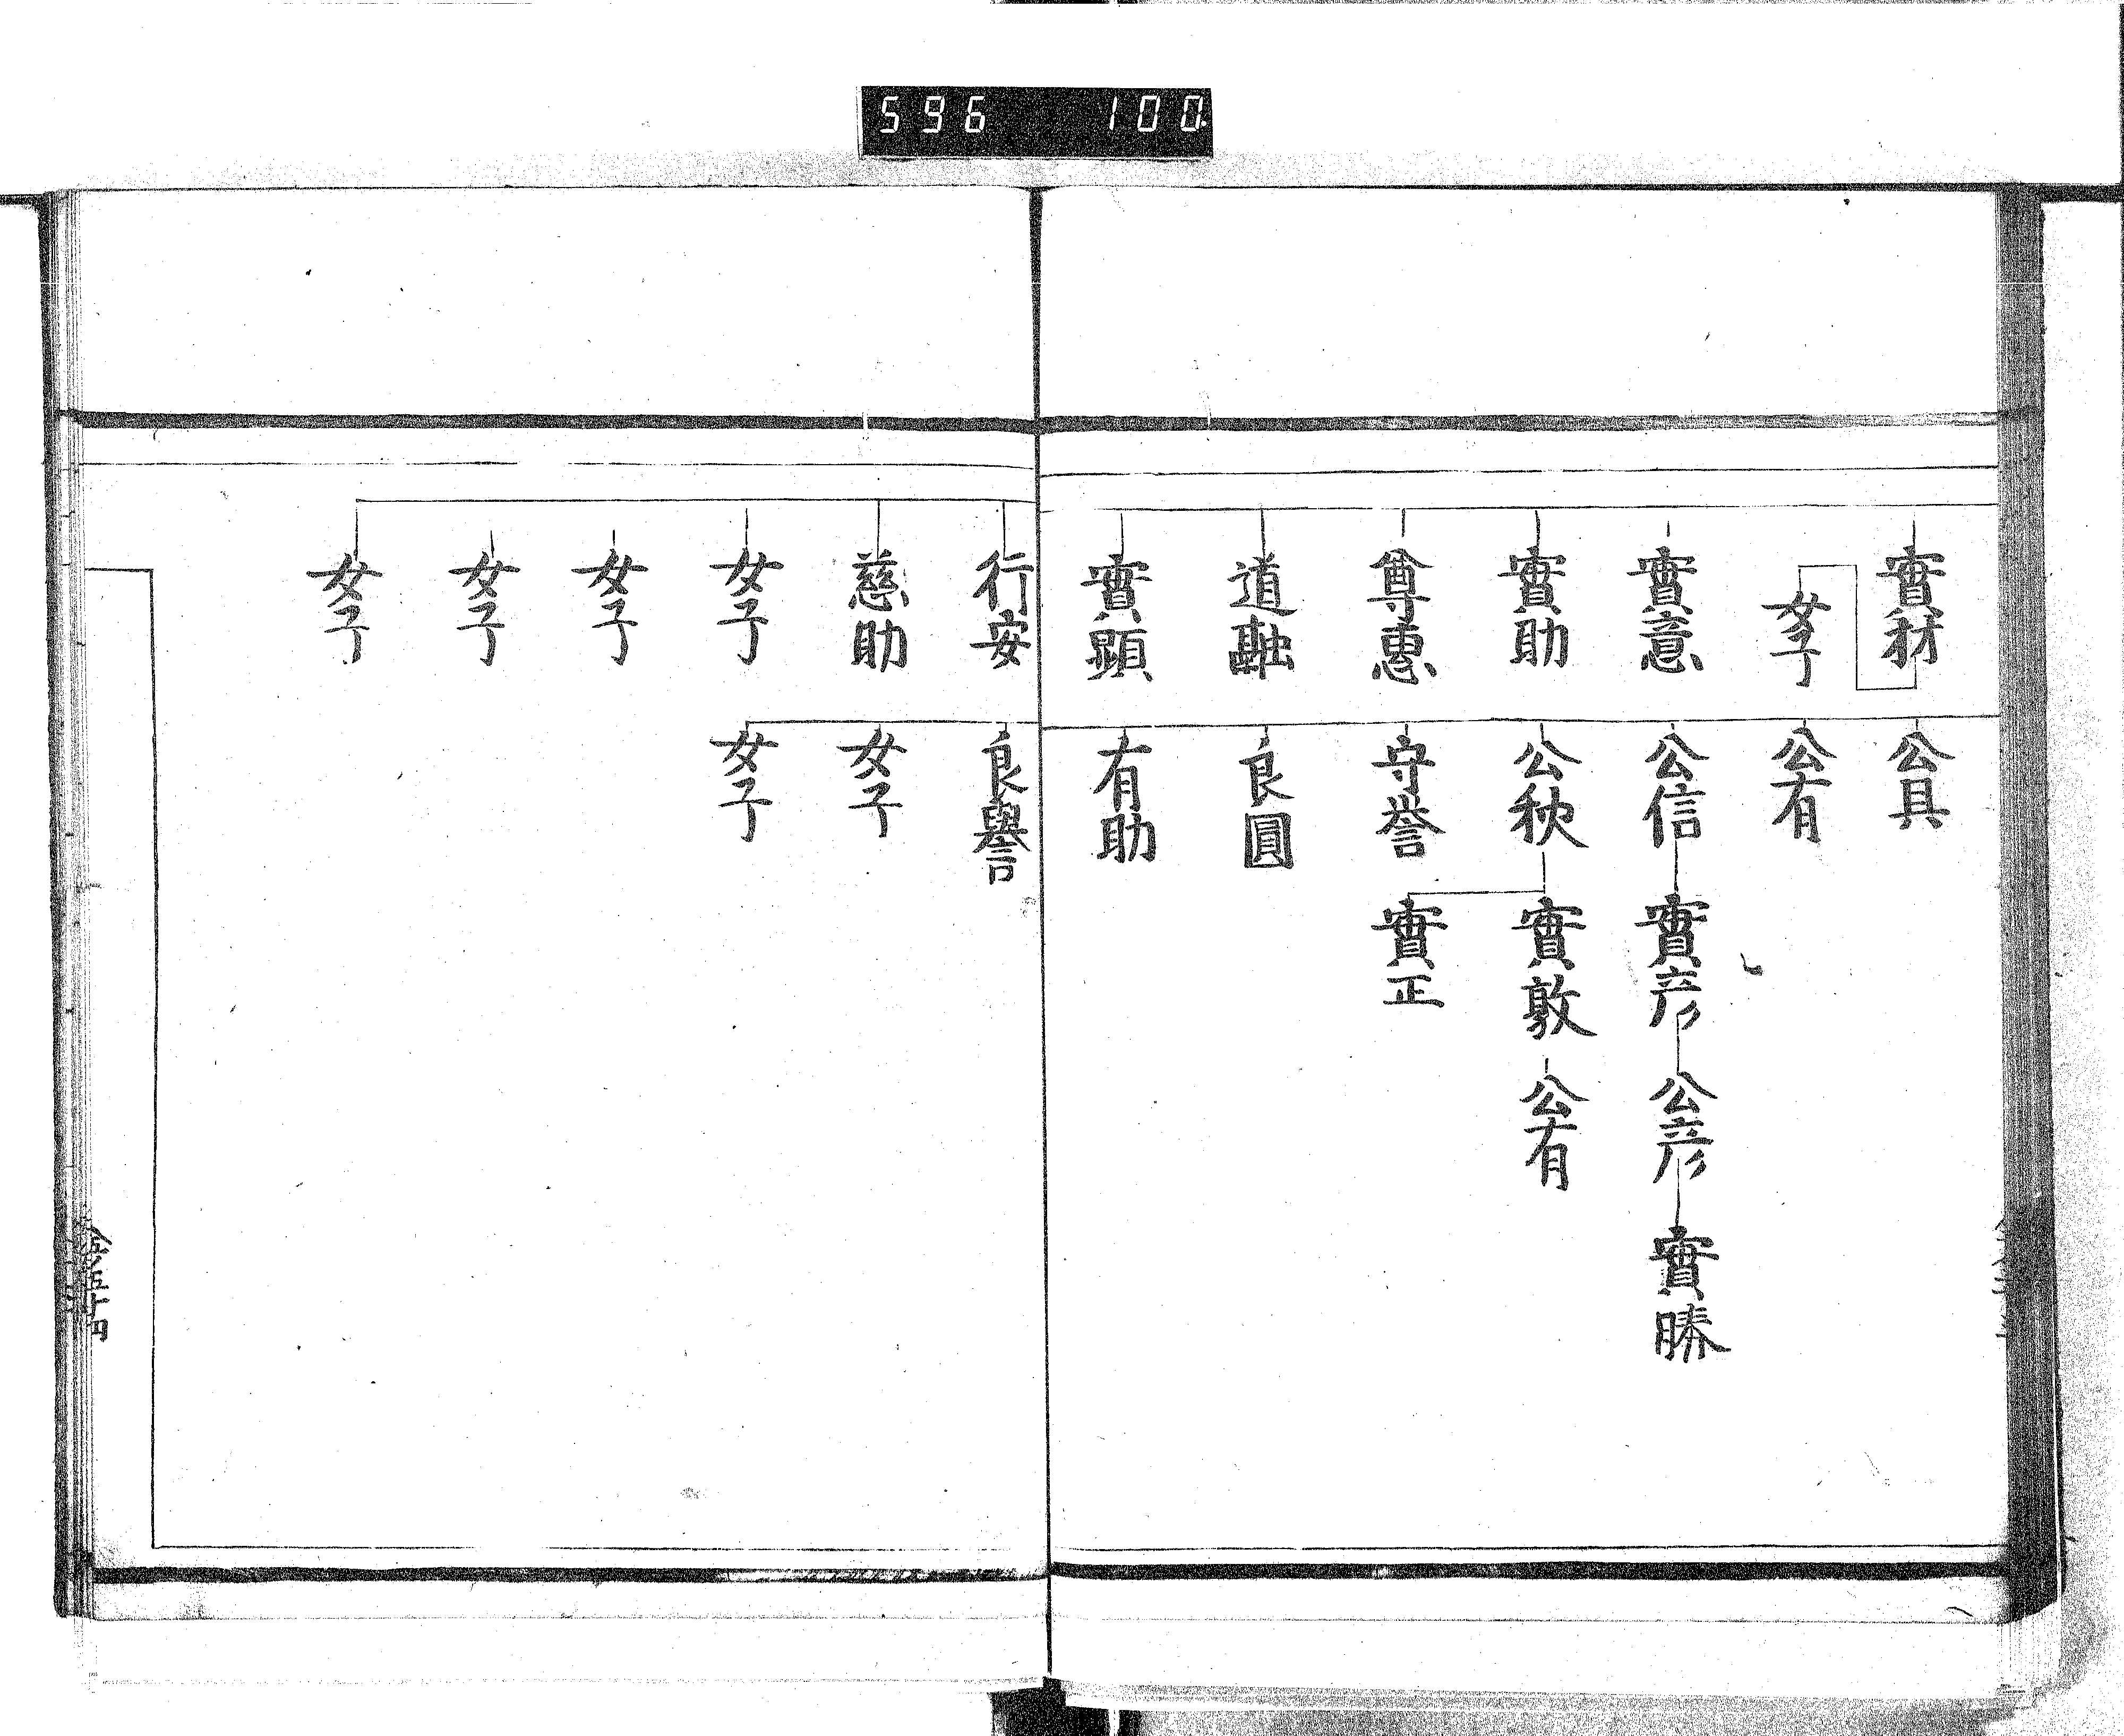 596 100
實材
女子
實意
實助
尊惠
道融
實顯
公具
公有
公信
實彦
公彦
實勝
公秋
實敦
公有
守誉
實正
良圓
有助
行安
慈助
女子
女子
女子
女子
良譽
女子
女子